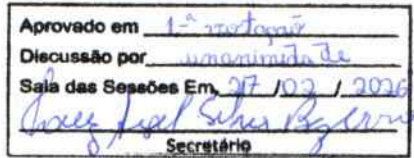 Aprovado em 1.ª votação
Discussão por unanimidade
Sala das Sessões Em, 27 / 02 / 2026
Silva Bezerra
Secretário